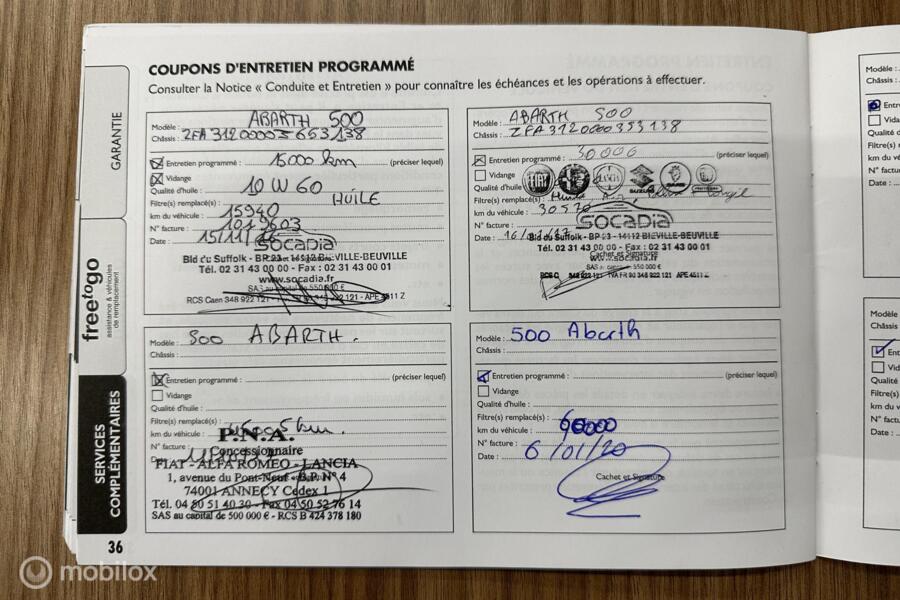 COUPONS D'ENTRETIEN PROGRAMMÉ
Consulter la Notice « Conduite et Entretien » pour connaître les échéances et les opérations à effectuer.
GARANTIE
freetogo
assistance & véhicules
de remplacement
SERVICES
COMPLÉMENTAIRES
36
Modèle : ABARTH 500
Châssis :
Entretien programmé : 15000 km (préciser lequel)
Vidange
Qualité d'huile : 10 W 60
Filtre(s) remplacé(s) : HUILE
km du véhicule : 15940
N° facture :
Date : 15/11/
SOCADIA
Bld du Suffolk - BP 23 - 14112 BIEVILLE-BEUVILLE
Tél. 02 31 43 00 00 - Fax : 02 31 43 00 01
www.socadia.fr
SAS au capital de 550 000 €
RCS Caen 348 922 121 - 348 922 121 - APE 4511 Z
Modèle : ABARTH 500
Châssis :
Entretien programmé : 30.000 (préciser lequel)
Vidange
Qualité d'huile :
Filtre(s) remplacé(s) :
km du véhicule : 30570
N° facture :
Date : 16/
FIAT
SUZUKI
SOCADIA
Bld du Suffolk - BP 23 - 14112 BIEVILLE-BEUVILLE
Tél. 02 31 43 00 00 - Fax : 02 31 43 00 01
Cachet et Signature
www.socadia.fr
SAS au capital de 550 000 €
348 922 121 - TVA FR 90 348 922 121 - APE 4511 Z
Modèle : 500 ABARTH.
Châssis :
Entretien programmé : (préciser lequel)
Vidange
Qualité d'huile :
Filtre(s) remplacé(s) :
km du véhicule : km
N° facture :
P.N.A.
Concessionnaire
FIAT - ALFA ROMEO - LANCIA
1, avenue du Pont-Neuf - B.P. N° 4
74001 ANNECY Cedex 1
Tél. 04 50 51 40 30 - Fax 04 50 52 76 14
SAS au capital de 500 000 € - RCS B 424 378 180
Modèle : 500 Abarth
Châssis :
Entretien programmé : (préciser lequel)
Vidange
Qualité d'huile :
Filtre(s) remplacé(s) :
km du véhicule : 60000
N° facture :
Date : 6/01/20
Cachet et Signature
Modèle :
Châssis :
Vidange
Qualité d
Filtre(s) r
km du vé
N° factur
Date :
Modèle
Châssis
Qualité
Filtre(s)
km du v
N° factu
Date :
mobilox